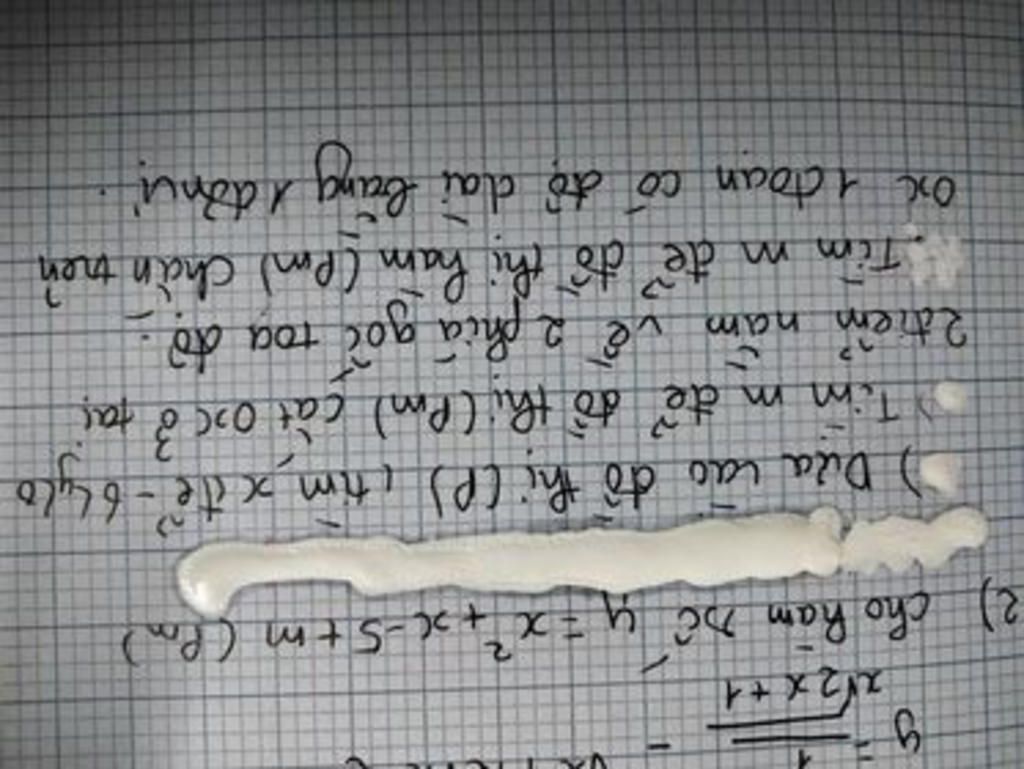 y = 1 / x√2x+1 -
2) cho hàm số y = x² + x - 5 + m (Pm)
) Dựa vào đồ thị (P), tìm x để -6≤y≤0
) Tìm m để đồ thị (Pm) cắt Ox ở tại
2 điểm nằm về 2 phía gốc tọa độ.
Tìm m để đồ thị hàm (Pm) chắn trên
Ox 1 đoạn có độ dài bằng 1 đơn vị.